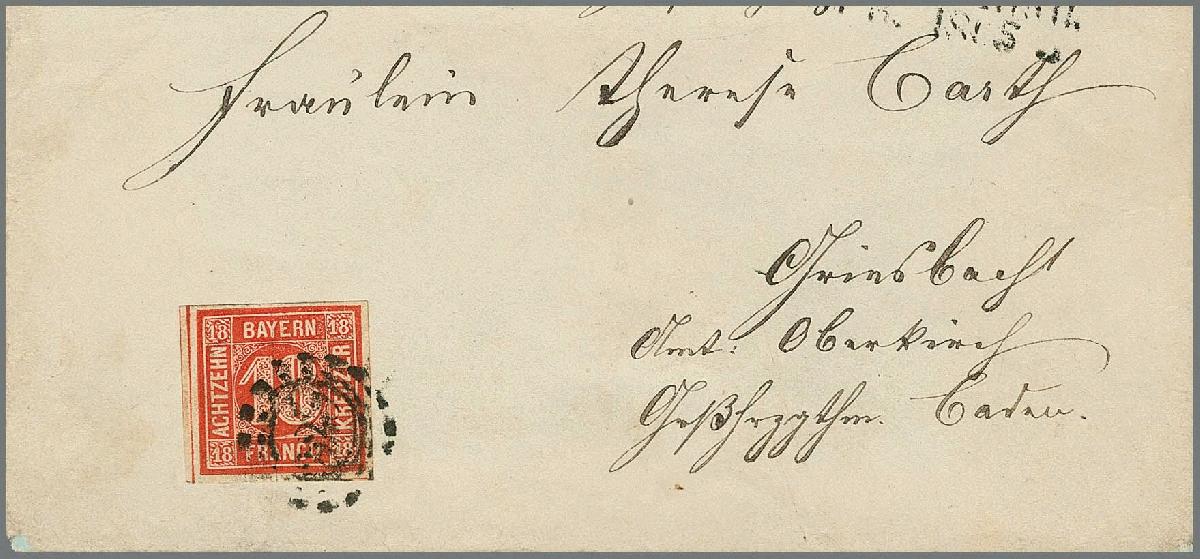 1865
Fräulein Therese Barth
Griesbach
Amt: Oberkirch
Großhrzgthm. Baden.
18 BAYERN 18
ACHTZEHN
18
KREUZER
18 FRANCO 18